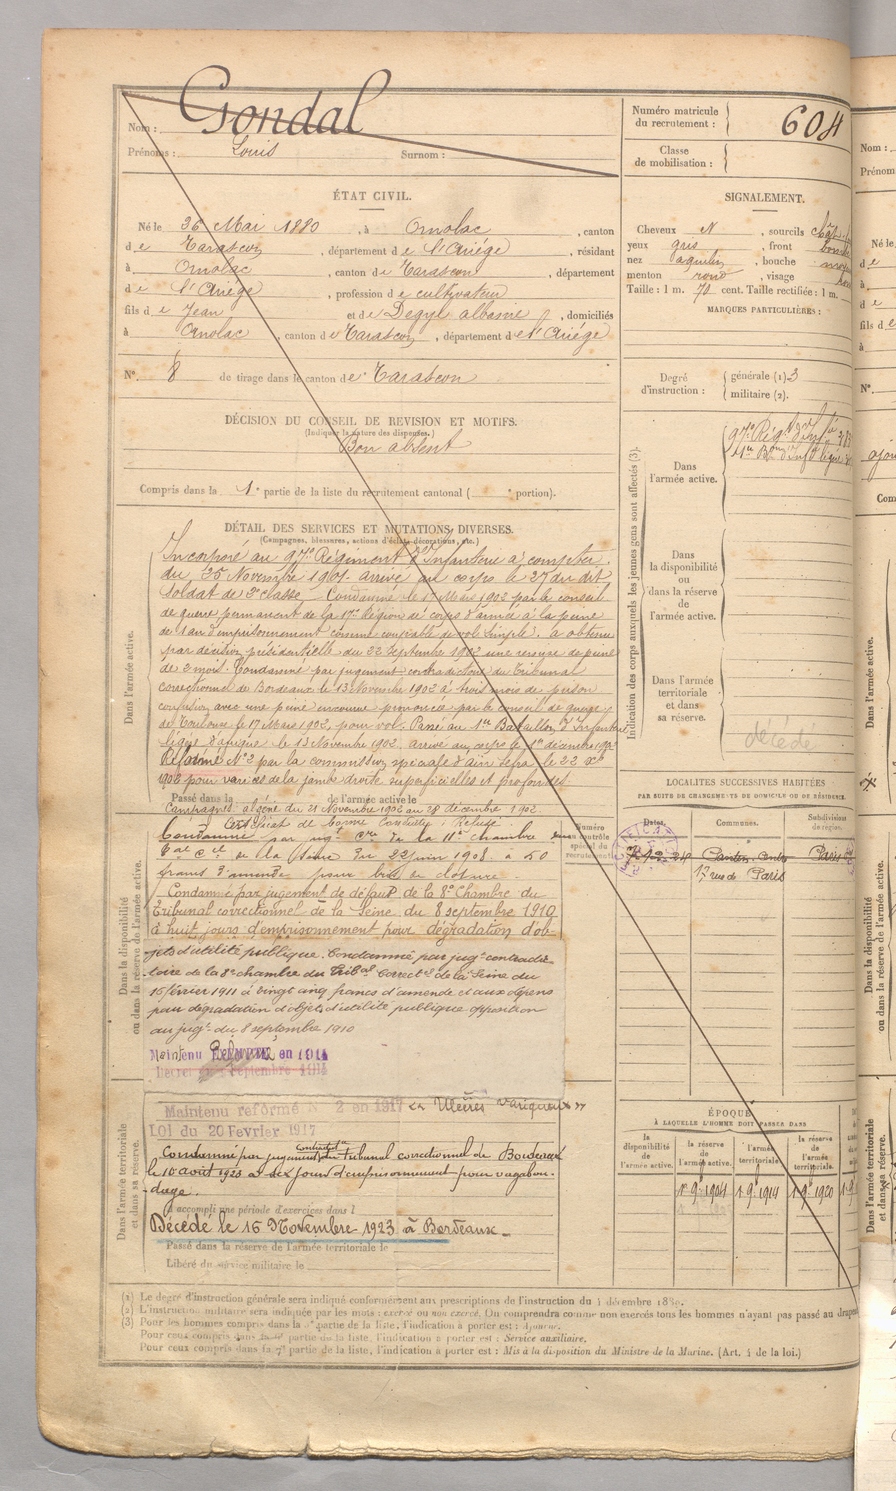 Nom : Gondal
Prénoms : Louis Surnom :
Numéro matricule du recrutement : 604
Classe de mobilisation :
ÉTAT CIVIL.
Né le 26 Mai 1880, à Ornolac, canton
de Tarascon, département de l'Ariége, résidant
à Ornolac, canton de Tarascon, département
de l'Ariége, profession de cultivateur
fils de Jean et de Degyl albanie, domiciliés
à Ornolac, canton de Tarascon, département de l'Ariége
N° 8 de tirage dans le canton de Tarascon
SIGNALEMENT.
Cheveux N, sourcils
yeux gris, front
nez aquilin, bouche
menton rond, visage
Taille : 1 m. 70 cent. Taille rectifiée : 1 m.
MARQUES PARTICULIÈRES :
Degré d'instruction : générale (1) 3
militaire (2).
DÉCISION DU CONSEIL DE REVISION ET MOTIFS.
(Indiquer la nature des dispenses.)
Bon absent
Compris dans la 1e partie de la liste du recrutement cantonal ( e portion).
DÉTAIL DES SERVICES ET MUTATIONS DIVERSES.
(Campagnes, blessures, actions d'éclat, décorations, etc.)
Dans l'armée active.
Incorporé au 97e Régiment d'Infanterie à compter
du 25 Novembre 1901. arrivé au corps le 27 du dit
Soldat de 2e classe. Condamné le 17 Mars 1902 par le conseil
de guerre permanent de la 17e Région de corps d'armée à la peine
de 1 an d'emprisonnement comme coupable de vol simple. a obtenu
par décision présidentielle du 22 Septembre 1902 une remise de peine
de 2 mois. Condamné par jugement contradictoire du Tribunal
correctionnel de Bordeaux le 13 Novembre 1902 à trois mois de prison
confusion avec une peine encourue prononcée par le conseil de guerre
de Toulouse le 17 Mars 1902, pour vol. Passé au 1er Bataillon d'Infanterie
légère d'afrique le 13 Novembre 1902. arrivé au corps le 1er décembre 1902
Réformé N° 2 par la commission spéciale d'Aïn Sefra le 22 Xbre
1902 pour varices de la jambe droite superficielles et profondes
Passé dans la de l'armée active le
Campagnes : algérie du 21 Novembre 1902 au 28 décembre 1902.
Certificat de bonne Conduite : Refusé.
Dans la disponibilité ou dans la réserve de l'armée active.
Condamné par jugt cre de la 11e chambre
Tal cel de la Seine du 22 juin 1908 à 50
francs d'amende pour bris de clôture.
Condamné par jugement de défaut de la 8e Chambre du
Tribunal correctionnel de la Seine du 8 septembre 1910
à huit jours d'emprisonnement pour dégradation d'ob-
jets d'utilité publique. Condamné par jugt contradic-
toire de la 8e chambre du Tribal Correctel de la Seine du
16 février 1911 à vingt cinq francs d'amende et aux dépens
pour dégradation d'objets d'utilité publique opposition
au jugt du 8 septembre 1910
Maintenu Réformé en 1914
Décret du Septembre 1914
Maintenu réformé N° 2 en 1917
LOI du 20 Fevrier 1917
Dans l'armée territoriale et dans sa réserve.
Condamné par jugement contradre du tribunal correctionnel de Bordeaux
le 10 août 1923 à dix jours d'emprisonnement pour vagabon-
dage.
a accompli une période d'exercices dans l
Décédé le 16 Novembre 1923 à Bordeaux.
Passé dans la réserve de l'armée territoriale le
Libéré du service militaire le
Numéro au contrôle spécial du recrutement
Indication des corps auxquels les jeunes gens sont affectés (3).
Dans l'armée active.
97e Régt d'Infie
1er Bon d'Inf légère
Dans la disponibilité ou dans la réserve de l'armée active.
Dans l'armée territoriale et dans sa réserve.
décédé
LOCALITÉS SUCCESSIVES HABITÉES
PAR SUITE DE CHANGEMENTS DE DOMICILE OU DE RÉSIDENCE.
Dates. Communes. Subdivision de région.
Paris
Paris
ÉPOQUE
À LAQUELLE L'HOMME DOIT PASSER DANS
la disponibilité de l'armée active. la réserve de l'armée active. l'armée territoriale. la réserve de l'armée territoriale.
1er 9bre 1904 1 9bre 1914 1 9bre 1920
(1) Le degré d'instruction générale sera indiqué conformément aux prescriptions de l'instruction du 4 décembre 1889.
(2) L'instruction militaire sera indiquée par les mots : exercé ou non exercé. On comprendra comme non exercés tous les hommes n'ayant pas passé au drapeau
(3) Pour les hommes compris dans la partie de la liste, l'indication à porter est : Ajourné.
Pour ceux compris dans la partie de la liste, l'indication à porter est : Service auxiliaire.
Pour ceux compris dans la 7e partie de la liste, l'indication à porter est : Mis à la disposition du Ministre de la Marine. (Art. 4 de la loi.)